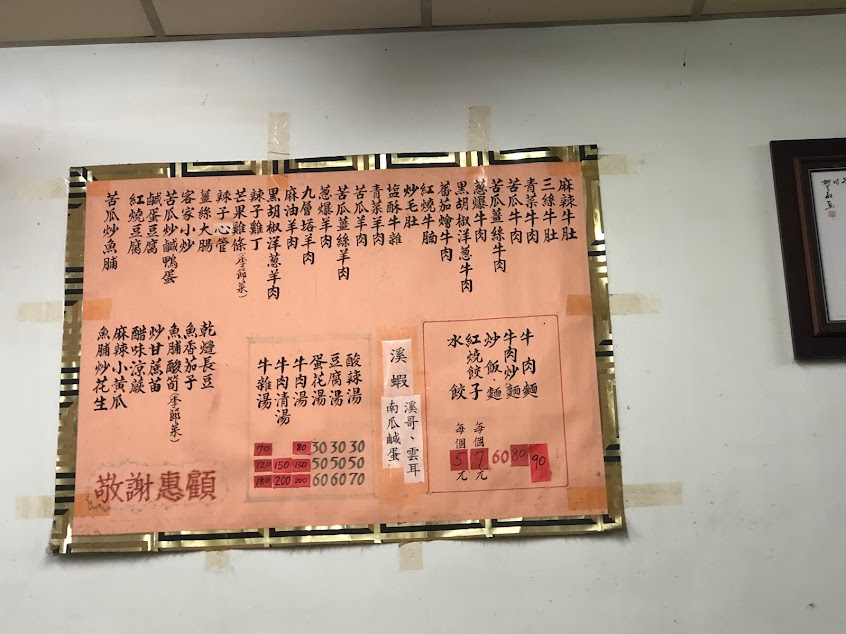 麻辣牛肚
三絲牛肚
青菜牛肉
苦瓜牛肉
苦瓜薑絲牛肉
蔥爆牛肉
黑胡椒洋蔥牛肉
蕃茄燴牛肉
紅燒牛腩
炒毛肚
塩酥牛雜
青菜羊肉
苦瓜羊肉
苦瓜薑絲羊肉
蔥爆羊肉
九層塔羊肉
麻油羊肉
黑胡椒洋蔥羊肉
辣子雞丁
芒果雞條(季節菜)
辣子心管
薑絲大腸
客家小炒
苦瓜炒鹹鴨蛋
鹹蛋豆腐
紅燒豆腐
苦瓜炒魚脯
牛肉麵 90
牛肉炒麵 80
炒飯、麵 60
紅燒餃子 每個7元
水餃 每個5元
溪蝦
溪哥、雲耳
南瓜鹹蛋
酸辣湯 30 50 70
豆腐湯 30 50 60
蛋花湯 30 50 60
牛肉湯 80 150 200
牛肉清湯 150 200
牛雜湯 70 120 180
乾煸長豆
魚香茄子
魚脯酸筍(季節菜)
炒甘蔗苗
醋味涼蕨
麻辣小黃瓜
魚脯炒花生
敬謝惠顧